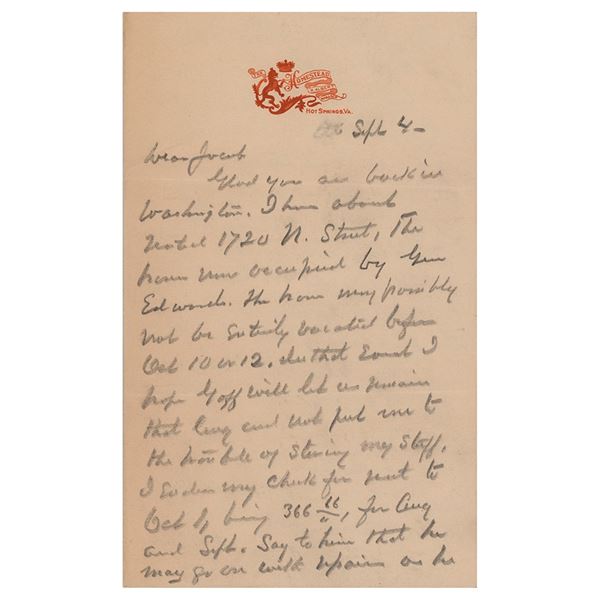 THE
HOMESTEAD
HOT SPRINGS, VA.
Sept 4-
Dear Jacob
Glad you are back in
Washington. I have about
rented 1720 N. Street, The
house now occupied by Gen
Edwards. The house may possibly
not be entirely vacated before
Oct 10 or 12. In that event I
hope Goff will let us remain
that long and not put me to
the trouble of storing my stuff.
I enclose my check for rent to
Oct 1, being 366 66/100, for Aug
and Sept. Say to him that he
may go on with repairs as he